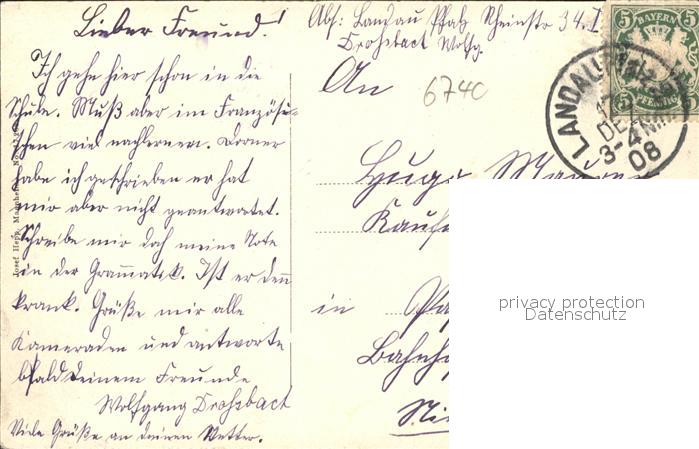 Lieber Freund!
Ich gehe hier schon in die
Schule. Muß aber im Französi-
schen viel nachlernen.
habe ich geschrieben er hat
mir aber nicht geantwortet.
Schreibe mir doch meine Note
in der Grammatik. Ist er denn
krank. Grüße mir alle
Kameraden und antworte
bald deinem Freunde
Wolfgang Drohsbach
Viele Grüße an deinen Vetter.
Abs: Landau Pfalz Rheinstr 34. I
Drohsbach Wolfg.
An
6740
Hugo
in
Bahnh
BAYERN
5 5
5 5
PFENNIG
LANDAU
DEZ
3-4 NM
08
Josef Hepp, Mannheim
privacy protection
Datenschutz